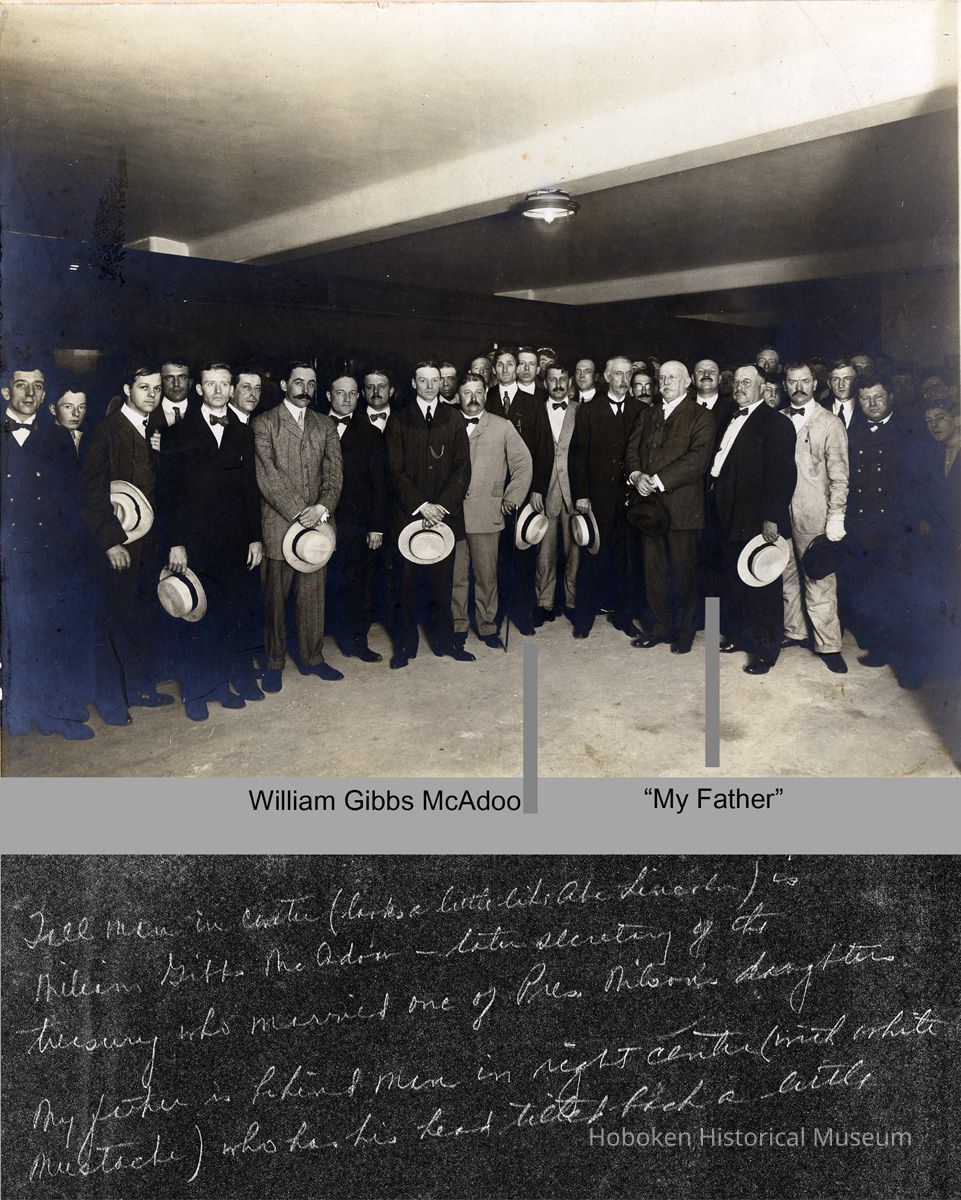 William Gibbs McAdoo
“My Father”
Tall man in center (looks a little like Abe Lincoln) is
William Gibbs McAdoo - later secretary of the
treasury who married one of Pres Wilson's daughters
My father is behind man in right center (with white
Mustache) who has his head tilted back a little
Hoboken Historical Museum